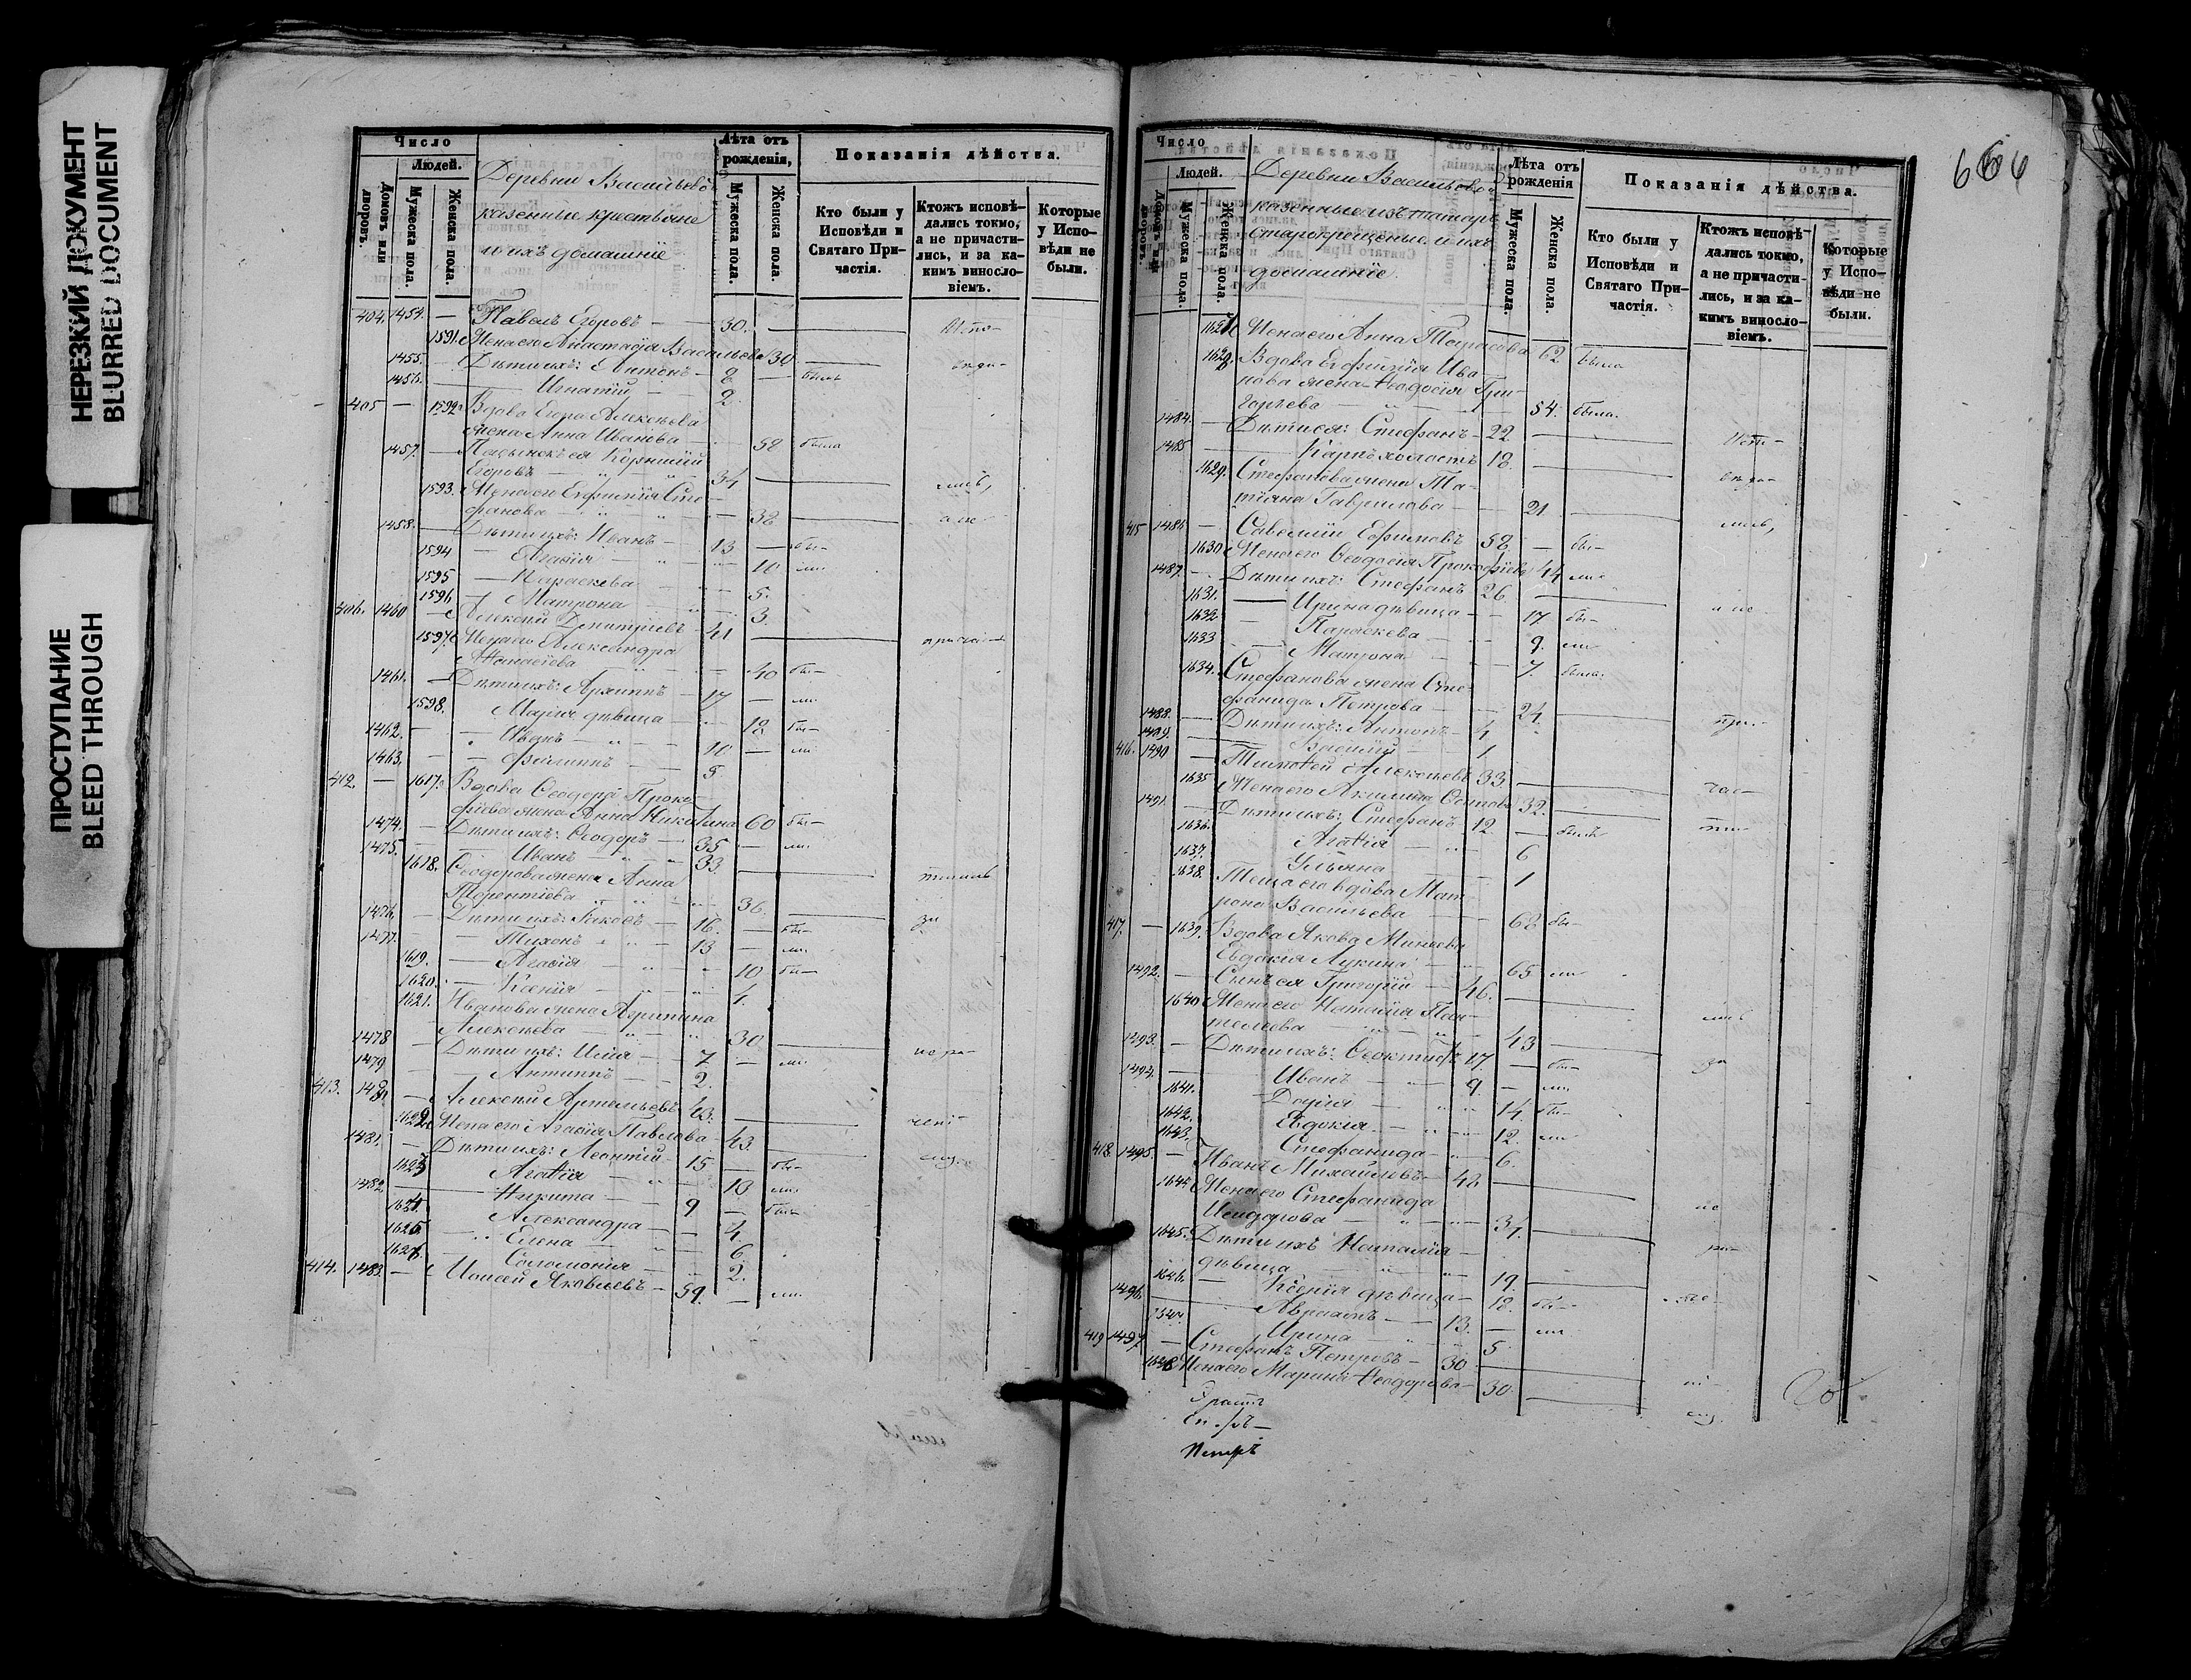 НЕРЕЗКИЙ ДОКУМЕНТ
BLURRED DOCUMENT
ПРОСТУПАНИЕ
BLEED THROUGH
Число
Домовъ или дворовъ.
Людей.
Мужеска пола.
Женска пола.
Деревни Васильевой
казенные крестьяне
и ихъ домашніе
Лѣта отъ рожденія,
Мужеска пола.
Женска пола.
Показанія дѣйства.
Кто были у Исповѣди и Святаго Причастія.
Ктожъ исповѣдались токмо, а не причастились, и за какимъ винословіемъ.
Которые у Исповѣди не были.
404. 1454. — Павелъ Егоровъ — 30. — Испо-
1591. Жена его Анастасія Васильева 30 —
1455. Дѣти ихъ: Антонъ — 8 — былъ вѣда-
1456. Игнатій — 2.
405 — 1592. Вдова Егора Алексѣева
жена Анна Иванова — 58 была
1457. — Пасынокъ ея Корнилій
Егоровъ — 34 — лись,
1593. Жена его Евфимія Сте-
фанова — 38 — а не
1458. — Дѣти ихъ: Иванъ — 13 — бы-
1594 — Агафія — 10 ли
1595 — Параскева — 5.
1596 — Матрона — 3.
406. 1460 — Алексій Дмитріевъ — 41 — причас-
1597. Жена его Александра
Аѳанасіева — 40 бы-
1461. — Дѣти ихъ: Архиппъ — 17 — ли
1598. Марія дѣвица — 18 бы-
1462. — Иванъ — 10 — ли
1463. — Филиппъ — 5
412. — 1617. Вдова Ѳеодора Проко-
фіева жена Анна Никитина 60 бы-
1474. — Дѣти ихъ: Ѳеодоръ — 35 — ли
1475. — Иванъ — 33.
1618. Ѳеодорова жена Анна
Терентіева — 36. — тились
1476. — Дѣти ихъ: Іаковъ — 16. — бы- за
1477. — Тихонъ — 13 — ли
1619. — Агафія — 10 бы-
1620. — Ксенія — 4.
1621. Иванова жена Агрипина
Алексѣева — 30. — нера-
1478 — Дѣти ихъ: Илія — 7 — ли
1479 — Антиппъ — 2.
413. 1480. — Алексѣй Артемьевъ 43. —
1622. Жена его Агафія Павлова 43 — дені-
1481. — Дѣти ихъ: Леонтій — 15 — бы- емъ
1623 Агафія — 13 ли
1482 Никита — 9 — былъ
1624. Александра — 4.
1625 Елена — 6.
1626. Соломонія — 2.
414. 1483. — Моисей Яковлевъ — 59. — ли
Число
Домовъ или дворовъ.
Людей.
Мужеска пола.
Женска пола.
Деревни Васильевой
казенные изъ татаръ
старокрещеные и ихъ
домашніе.
Лѣта отъ рожденія
Мужеска пола.
Женска пола.
Показанія дѣйства.
Кто были у Исповѣди и Святаго Причастія.
Ктожъ исповѣдались токмо, а не причастились, и за какимъ винословіемъ.
Которые у Исповѣди не были.
666
1627 Жена его Анна Тарасова 62 была
1628. Вдова Евфимія Ива-
нова жена Ѳеодосія Гри-
горьева — 54. была.
1484. — Дѣти ея: Стефанъ — 22 — Испо-
1485 — Карпъ холостъ 18. —
1629. Стефанова жена Та-
тіана Гаврилова — 21 — вѣда-
415 1486 — Савелій Ефимовъ 58 — бы- лись,
1630. Жена его Ѳеодосія Прокофіева 44 ли
1487. — Дѣти ихъ: Стефанъ 26. —
1631. — Ирина дѣвица — 17. бы- а не
1632 — Параскева — 9. ли
1633 — Матрона — 7. была.
1634. Стефанова жена Сте-
фанида Петрова — 24. — при-
1488. — Дѣти ихъ: Антонъ — 4
1489. Василій — 1
416. 1490 — Тимоѳей Алексѣевъ 33. —
1635 Жена его Акилина Осипова 32. — час-
1491. — Дѣти ихъ: Стефанъ 12 — былъ ти-
1636. Агафія — 6
1637. Ульяна — 1
1638. Теща его вдова Мат-
рона Васильева — 68 бы-
417. — 1639. Вдова Якова Минеева
Евдокія Лукина — 65 ли
1492. — Сынъ ея Григорій — 46. —
1640 Жена его Наталія Пан-
телеева — 43 — лись
1493. — Дѣти ихъ: Ѳеоктистъ 17 — бы- за
1494. — Иванъ — 9 — ли
1641. Дарія — 14. бы-
1642. Евдокія — 12. ли
1643. Стефанида — 6.
418 1495. — Иванъ Михайловъ — 42 —
1644. Жена его Стефанида
Исидорова — 37. — не
1645. Дѣти ихъ Наталія
дѣвица — 19. — ра-
1646. — Ксенія дѣвица — 18. бы- де-
1496. Авраамъ — 13. — ли
1647. Ирина — 5
419 1497. — Стефанъ Петровъ — 30 — ні-
1648 Жена его Марина Ѳеодорова — 30. — емъ
Петръ